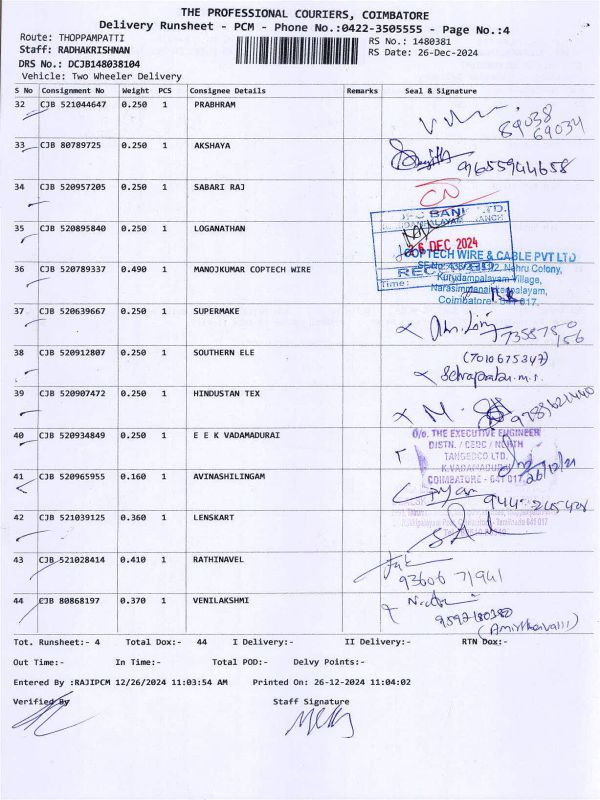 THE PROFESSIONAL COURIERS, COIMBATORE
Delivery Runsheet - PCM - Phone No.:0422-3505555 - Page No.:4
Route: THOPPAMPATTI
RS No.: 1480381
Staff: RADHAKRISHNAN
RS Date: 26-Dec-2024
DRS No.: DCJB148038104
Vehicle: Two Wheeler Delivery
S No Consignment No Weight PCS Consignee Details Remarks Seal & Signature
32 CJB 521044647 0.250 1 PRABHRAM
89038
69034
33 CJB 80789725 0.250 1 AKSHAYA
9655944658
34 CJB 520957205 0.250 1 SABARI RAJ
35 CJB 520895840 0.250 1 LOGANATHAN
26 DEC 2024
COOPTECH WIRE & CABLE PVT LTD
36 CJB 520789337 0.490 1 MANOJKUMAR COPTECH WIRE
Nehru Colony,
Kurudampalayam Village,
Time:
Coimbatore
37 CJB 520639667 0.250 1 SUPERMAKE
38 CJB 520912807 0.250 1 SOUTHERN ELE
(7010675347)
39 CJB 520907472 0.250 1 HINDUSTAN TEX
40 CJB 520934849 0.250 1 E E K VADAMADURAI
O/o. THE EXECUTIVE ENGINEER
DISTN. / CEDC / NORTH
TANGEDCO LTD.
K.VADAMADURAI
COIMBATORE - 641 017.
41 CJB 520965955 0.160 1 AVINASHILINGAM
42 CJB 521039125 0.360 1 LENSKART
43 CJB 521028414 0.410 1 RATHINAVEL
93606 71941
44 CJB 80868197 0.370 1 VENILAKSHMI
Tot. Runsheet:- 4 Total Dox:- 44 I Delivery:- II Delivery:- RTN Dox:-
Out Time:- In Time:- Total POD:- Delvy Points:-
Entered By :RAJIPCM 12/26/2024 11:03:54 AM Printed On: 26-12-2024 11:04:02
Verified By Staff Signature